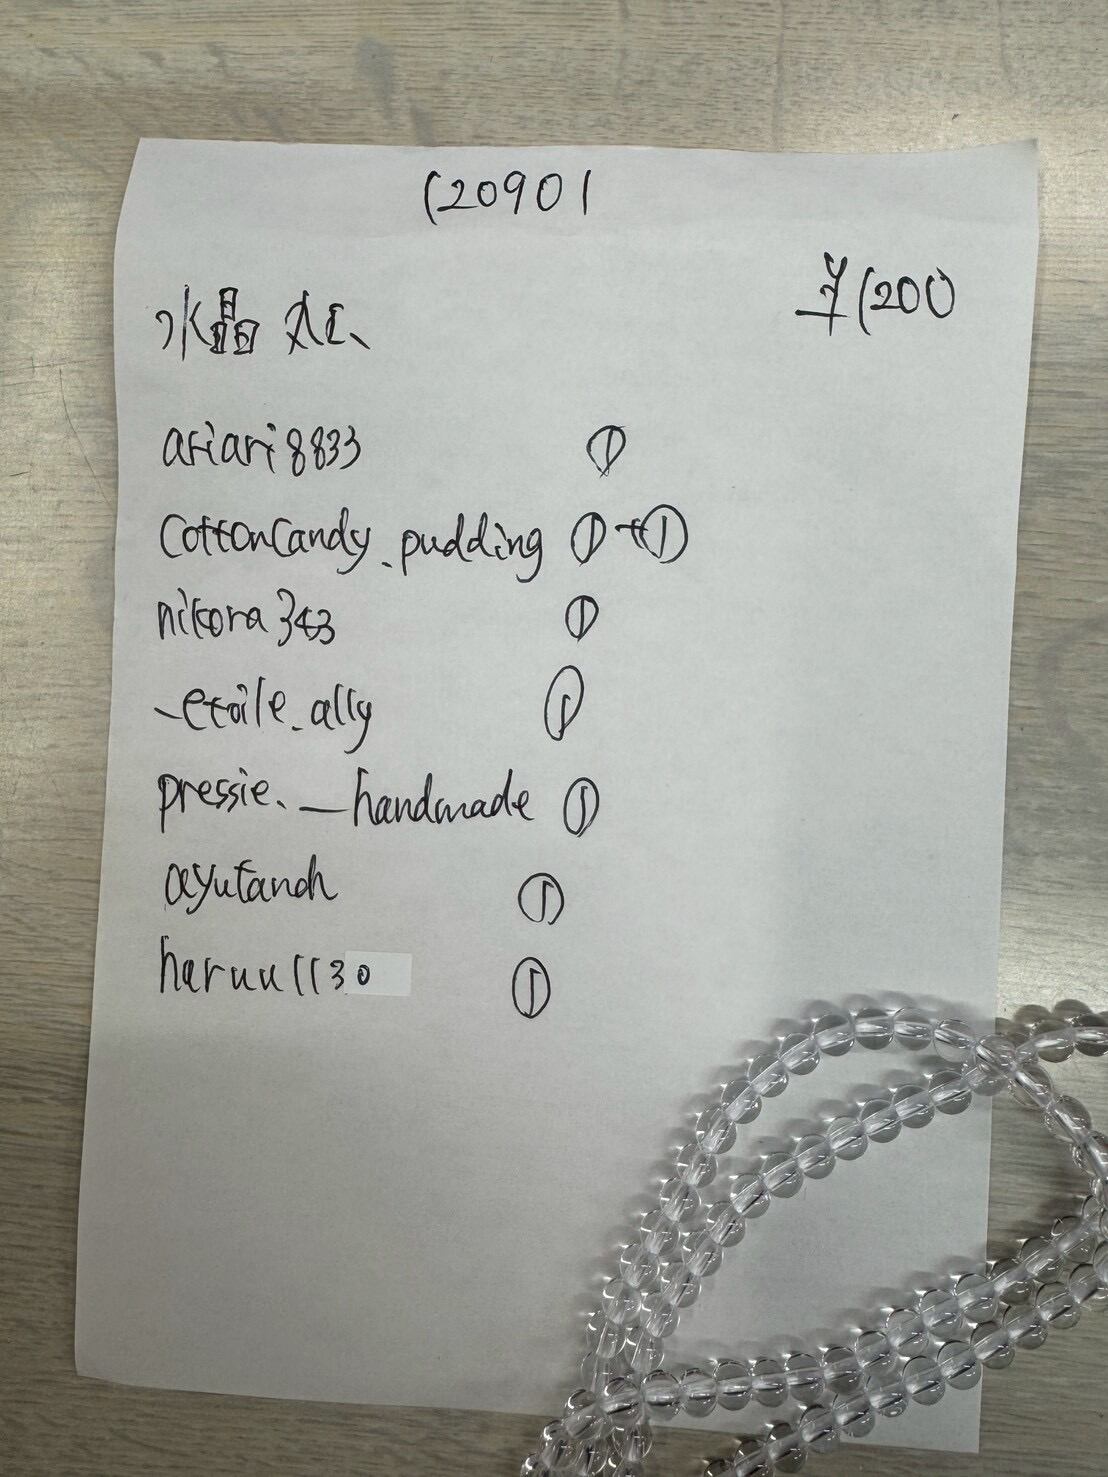 120901
¥1200
水晶 丸
ariari8833 ①
cottoncandy_pudding ①+①
nikora343 ①
_etoile_ally ①
pressie.__handmade ①
ayutanoh ①
haruu1130 ①